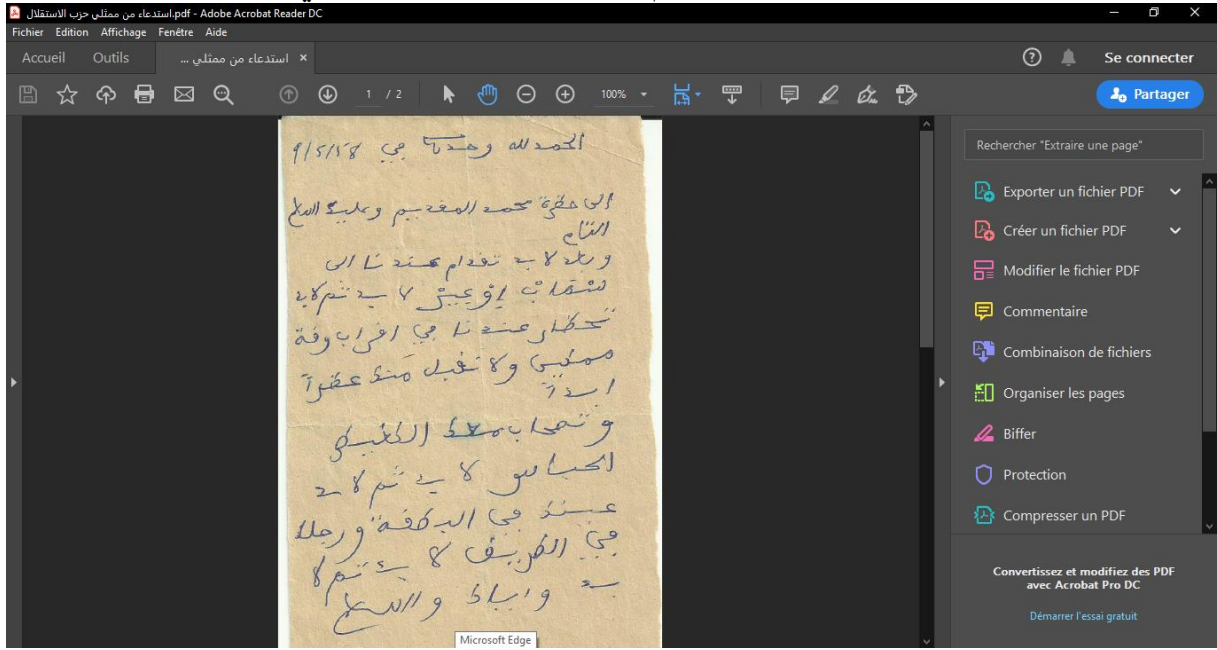 استدعاء من ممثلي حزب الاستقلال.pdf - Adobe Acrobat Reader DC
Fichier Edition Affichage Fenêtre Aide
Accueil Outils استدعاء من ممثلي ... ×
Se connecter
1 / 2 100% Partager
الحمد لله وحده في 9/5/58
الى حضرة محمد المقديم وعليك السلام
التام
وبعد لا بد تقدام عندنا الى
لا بد ثم لابد
تحظر عندنا في اقراب وقة
ممكن ولا نقبل منك عظراً
ابداً
وتصحاب معك
لا بد ثم لا بد
عندك في البطقة ورجلك
في الطريق لا بد ثم لا
بد واياك والسلام
Rechercher "Extraire une page"
Exporter un fichier PDF
Créer un fichier PDF
Modifier le fichier PDF
Commentaire
Combinaison de fichiers
Organiser les pages
Biffer
Protection
Compresser un PDF
Convertissez et modifiez des PDF
avec Acrobat Pro DC
Démarrer l'essai gratuit
Microsoft Edge